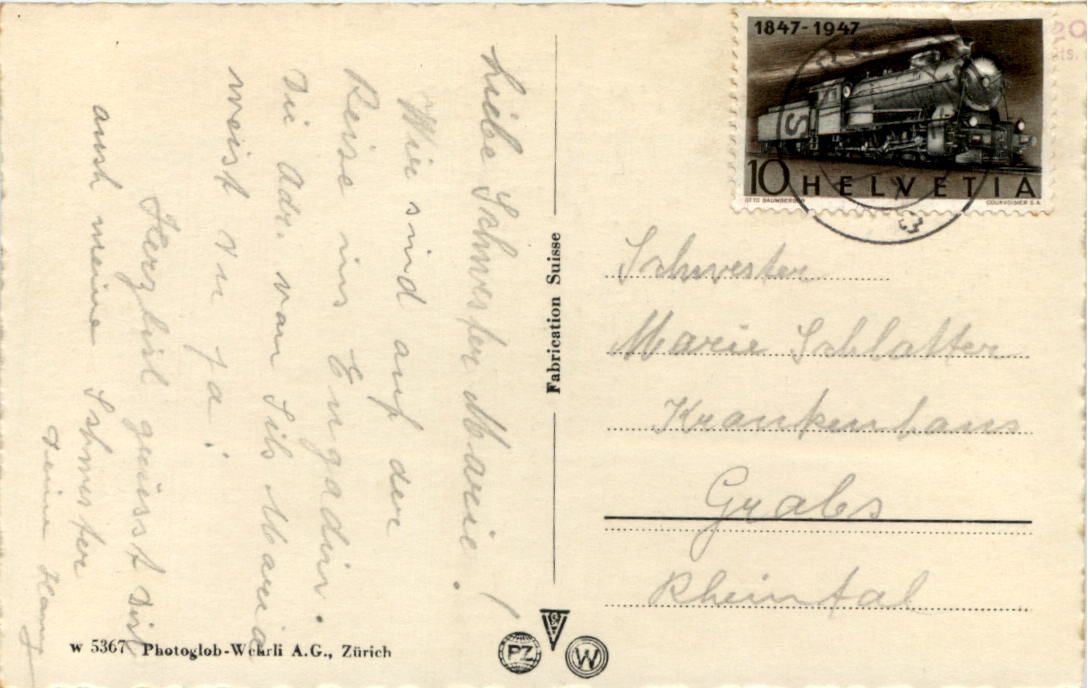 Liebe Schwester Marie!
Wir sind auf der
Reise ins Engadin.
Die Adr. von Sils Maria
weist du ja!
Herzlich grüsst dich
auch meine Schwester
Deine
1847-1947
S
10 HELVETIA
OTTO BAUMBERGER COURVOISIER S.A.
Fabrication Suisse
Schwester
Marie Schlatter
Krankenhaus
Grabs
Rheintal
W 5367 Photoglob-Wehrli A.G., Zürich
PZ
W